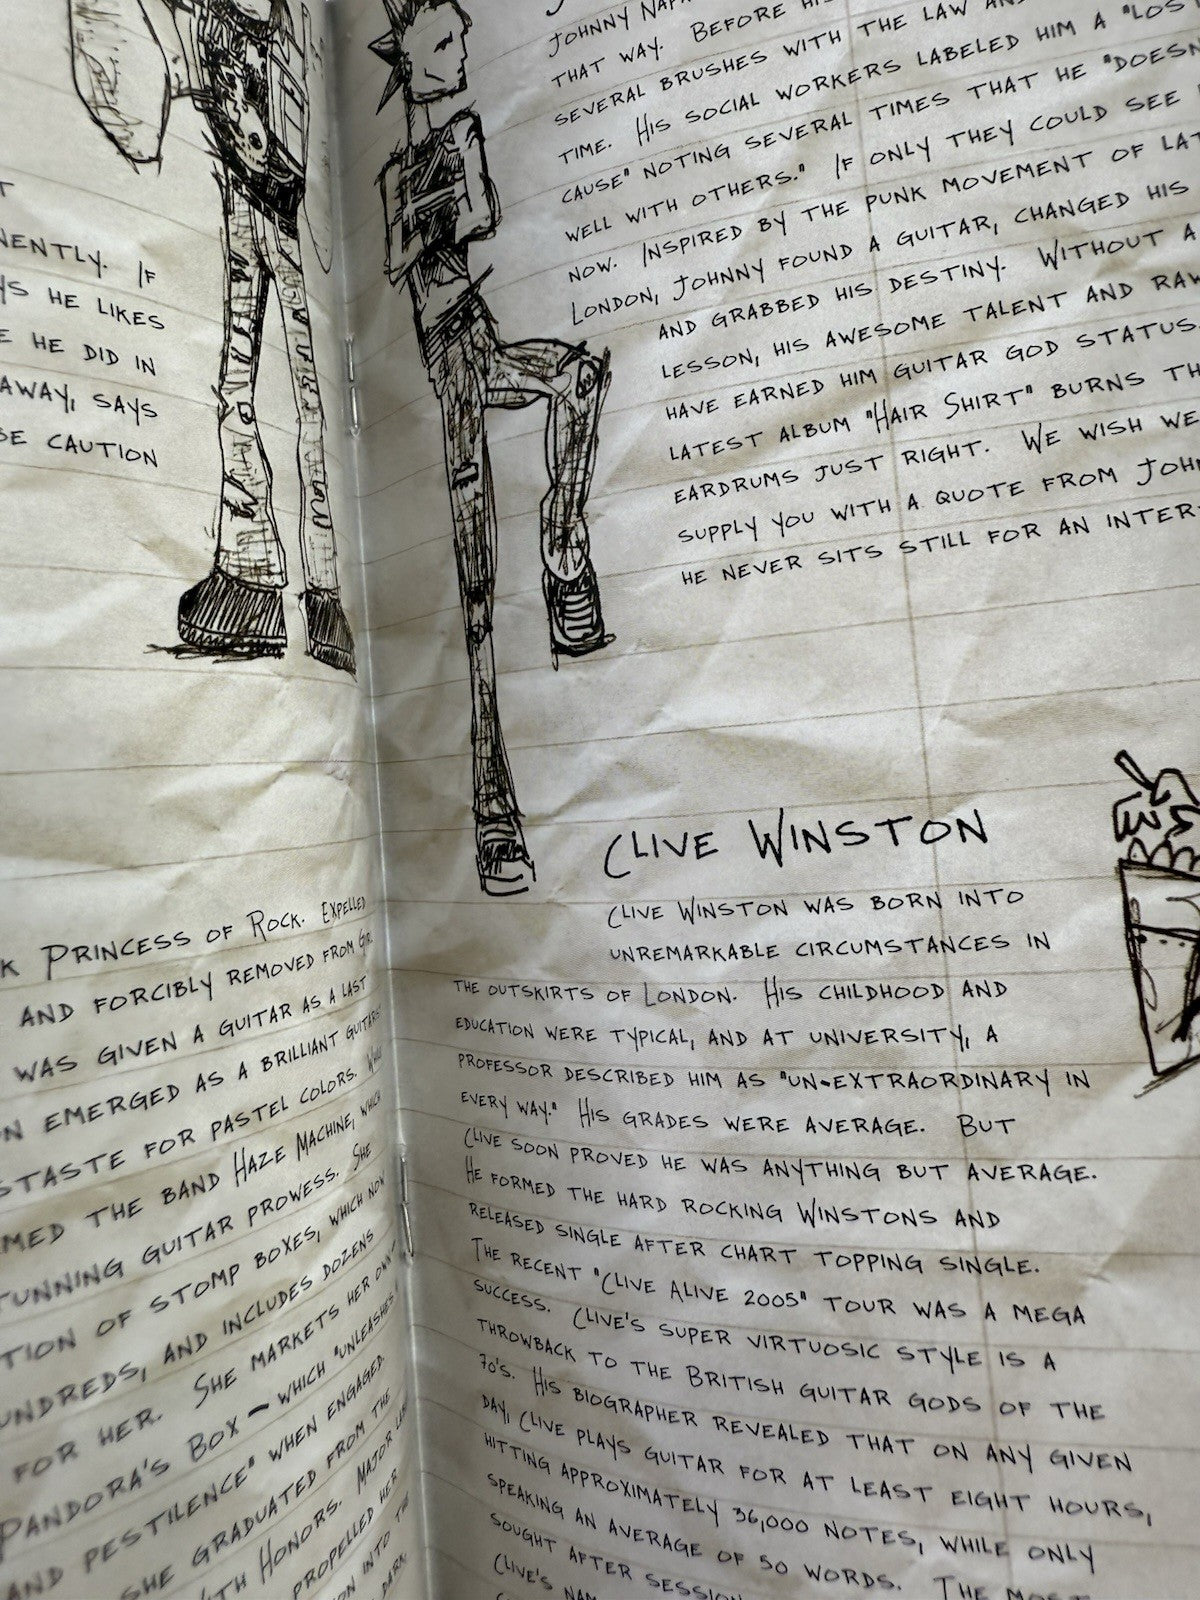 T
NENTLY. IF
YS HE LIKES
E HE DID IN
AWAY, SAYS
BE CAUTION
K PRINCESS OF ROCK. EXPELLED
AND FORCIBLY REMOVED FROM
WAS GIVEN A GUITAR AS A LAST
N EMERGED AS A BRILLIANT GUITARIS
STASTE FOR PASTEL COLORS. WHILE
MED THE BAND HAZE MACHINE, WHICH
TUNNING GUITAR PROWESS. SHE
TION OF STOMP BOXES, WHICH NOW
UNDREDS, AND INCLUDES DOZENS
FOR HER. SHE MARKETS HER OWN
PANDORA'S BOX – WHICH "UNLEASHES
AND PESTILENCE" WHEN ENGAGED.
SHE GRADUATED FROM THE
ITH HONORS. MAJOR
PROPELLED HER
ON INTO THE
DARK
JOHNNY NAPA
THAT WAY. BEFORE HI
SEVERAL BRUSHES WITH THE LAW AN
TIME. HIS SOCIAL WORKERS LABELED HIM A "LOS
CAUSE" NOTING SEVERAL TIMES THAT HE "DOESN
WELL WITH OTHERS." IF ONLY THEY COULD SEE
NOW. INSPIRED BY THE PUNK MOVEMENT OF LAT
LONDON, JOHNNY FOUND A GUITAR, CHANGED HIS
AND GRABBED HIS DESTINY. WITHOUT A
LESSON, HIS AWESOME TALENT AND RAW
HAVE EARNED HIM GUITAR GOD STATUS
LATEST ALBUM "HAIR SHIRT" BURNS TH
EARDRUMS JUST RIGHT. WE WISH WE
SUPPLY YOU WITH A QUOTE FROM JOHN
HE NEVER SITS STILL FOR AN INTER
CLIVE WINSTON
CLIVE WINSTON WAS BORN INTO
UNREMARKABLE CIRCUMSTANCES IN
THE OUTSKIRTS OF LONDON. HIS CHILDHOOD AND
EDUCATION WERE TYPICAL, AND AT UNIVERSITY, A
PROFESSOR DESCRIBED HIM AS "UN-EXTRAORDINARY IN
EVERY WAY." HIS GRADES WERE AVERAGE. BUT
CLIVE SOON PROVED HE WAS ANYTHING BUT AVERAGE.
HE FORMED THE HARD ROCKING WINSTONS AND
RELEASED SINGLE AFTER CHART TOPPING SINGLE.
THE RECENT "CLIVE ALIVE 2005" TOUR WAS A MEGA
SUCCESS. CLIVE'S SUPER VIRTUOSIC STYLE IS A
THROWBACK TO THE BRITISH GUITAR GODS OF THE
70'S. HIS BIOGRAPHER REVEALED THAT ON ANY GIVEN
DAY, CLIVE PLAYS GUITAR FOR AT LEAST EIGHT HOURS,
HITTING APPROXIMATELY 36,000 NOTES, WHILE ONLY
SPEAKING AN AVERAGE OF 50 WORDS. THE MOST
SOUGHT AFTER SESSION
CLIVE'S NAM